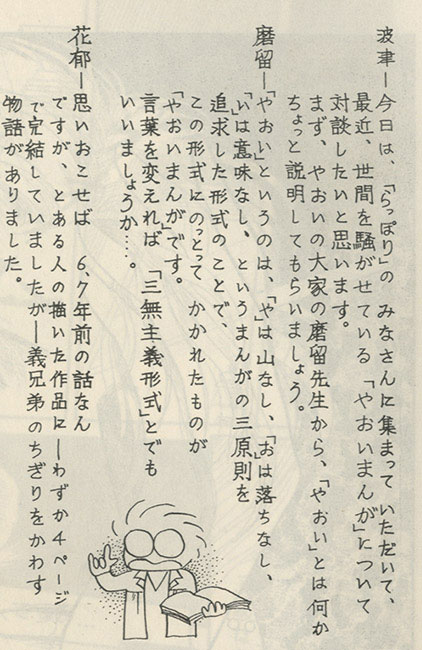 波津―今日は、「らっぽり」の みなさんに集まって いただいて、
最近、世間を騒がせている「やおいまんが」について
対談したいと思います。
まず、やおいの大家の磨留先生から、「やおい」とは何か
ちょっと説明してもらいましょう。
磨留―「やおい」というのは、「や」は山なし、「お」は落ちなし、
「い」は意味なし、というまんがの三原則を
追求した形式のことで、
この形式にのっとって かかれたものが
「やおいまんが」です。
言葉を変えれば 「三無主義形式」とでも
いいましょうか…。
花郁―思いおこせば 6,7年前の話なん
ですが、とある人の描いた作品に―わずか4ページ
で完結していましたが―義兄弟のちぎりをかわす
物語がありました。